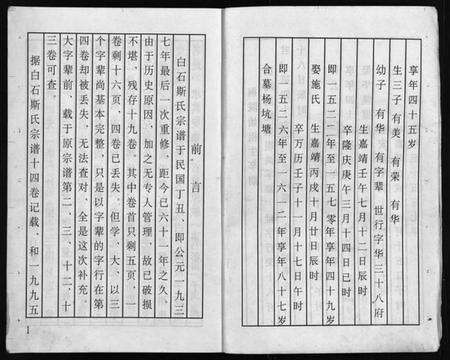 享年四十五岁
生三子 有美 有荣 有华
幼子 有华 有字辈 世行字华三十八府
生嘉靖壬午七月十二日辰时
卒隆庆庚午三月十四日已时
即一五二二年至一五七零年享年四十九岁
娶施氏 生嘉靖丙戌十月廿日辰时
卒万历壬子十一月十七日午时
即一五二六年至一六一二年享年八十七岁
合墓杨坑塘
前言
白石斯氏宗谱于民国丁丑，即公元一九三
七年最后一次重修，距今已六十一年之久，
由于历史原因，加之无专人管理，故已破损
不堪，残存十九卷，其中卷首只剩五页，一
卷剩十六页，四卷已丢失。但学、大、以三
个字辈尚基本完整，只是以字辈的字行在第
四卷却被丢失，无法查对，全是这次补充。
大字辈前，载于原宗谱第二、三、十二、十
三卷可查。
据白石斯氏宗谱十四卷记载，和一九九五
1